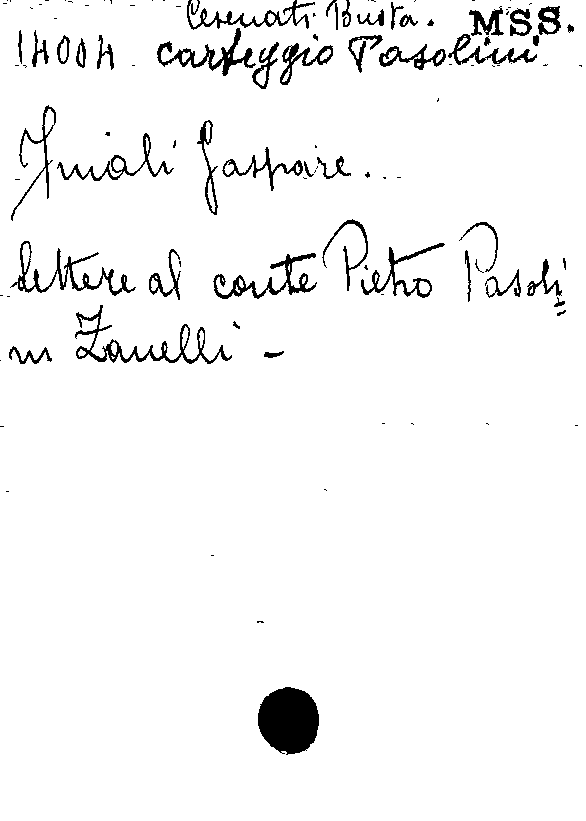 Cesenati Busta. MSS.
14004 carteggio Pasolini
Gaspare...
lettere al conte Pietro Pasoli=
ni Zanelli -